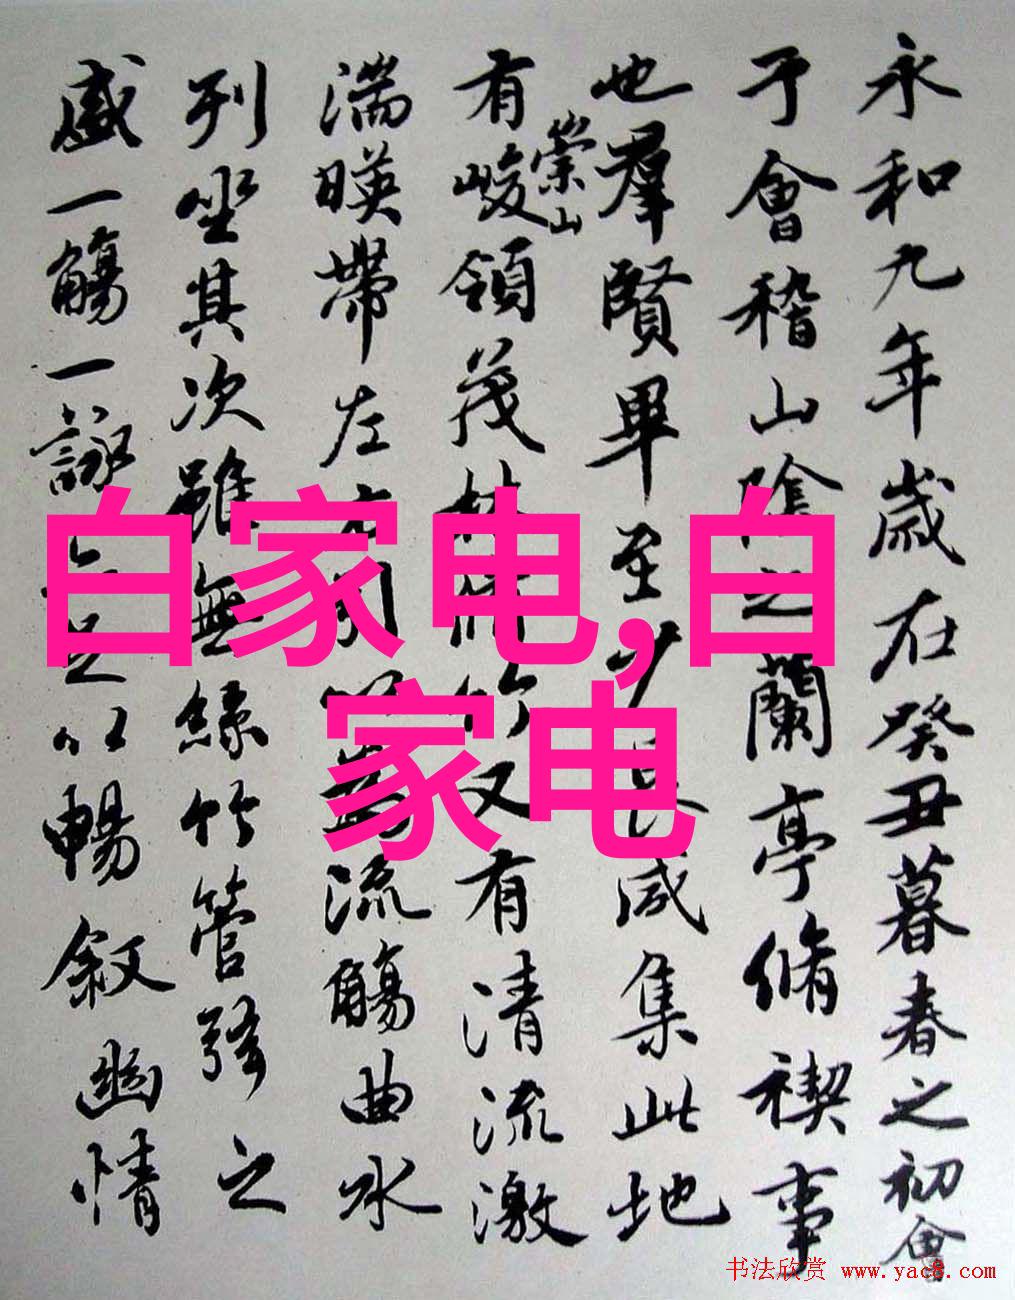 永和九年歲在癸丑暮春之初會
于會稽山陰之蘭亭脩禊事
也羣賢畢至少長咸集此地
有崇山峻領茂林脩竹又有清流激
湍暎帶左右引以為流觴曲水
列坐其次雖無絲竹管弦之
盛一觴一詠亦足以暢敘幽情
白家电,白
家电
书法欣赏 www.yac8.com